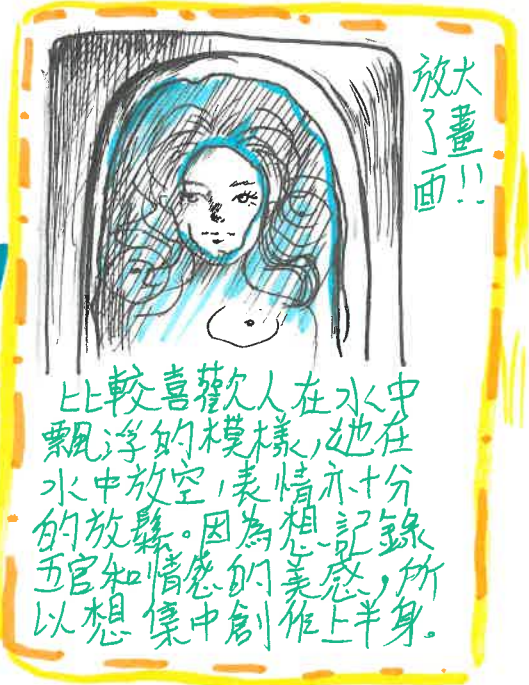 放大
了畫
面!!
比較喜歡人在水中
飄浮的模樣,她在
水中放空,表情亦十分
的放鬆。因為想記錄
五官和情感的美感,所
以想集中創作上半身。